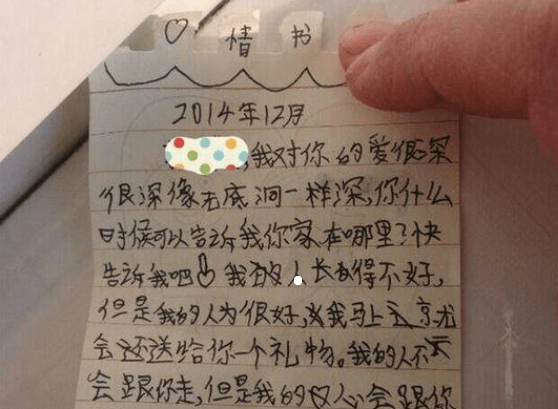 ♡ 情 书
2014年12月
,我对你的爱很深
很深像无底洞一样深,你什么
时候可以告诉我你家在哪里?快
告诉我吧 我 人长 得不好,
但是我的人为很好, 我马上
会还送给你一个礼物。我的人不
会跟你走,但是我的 心会跟你